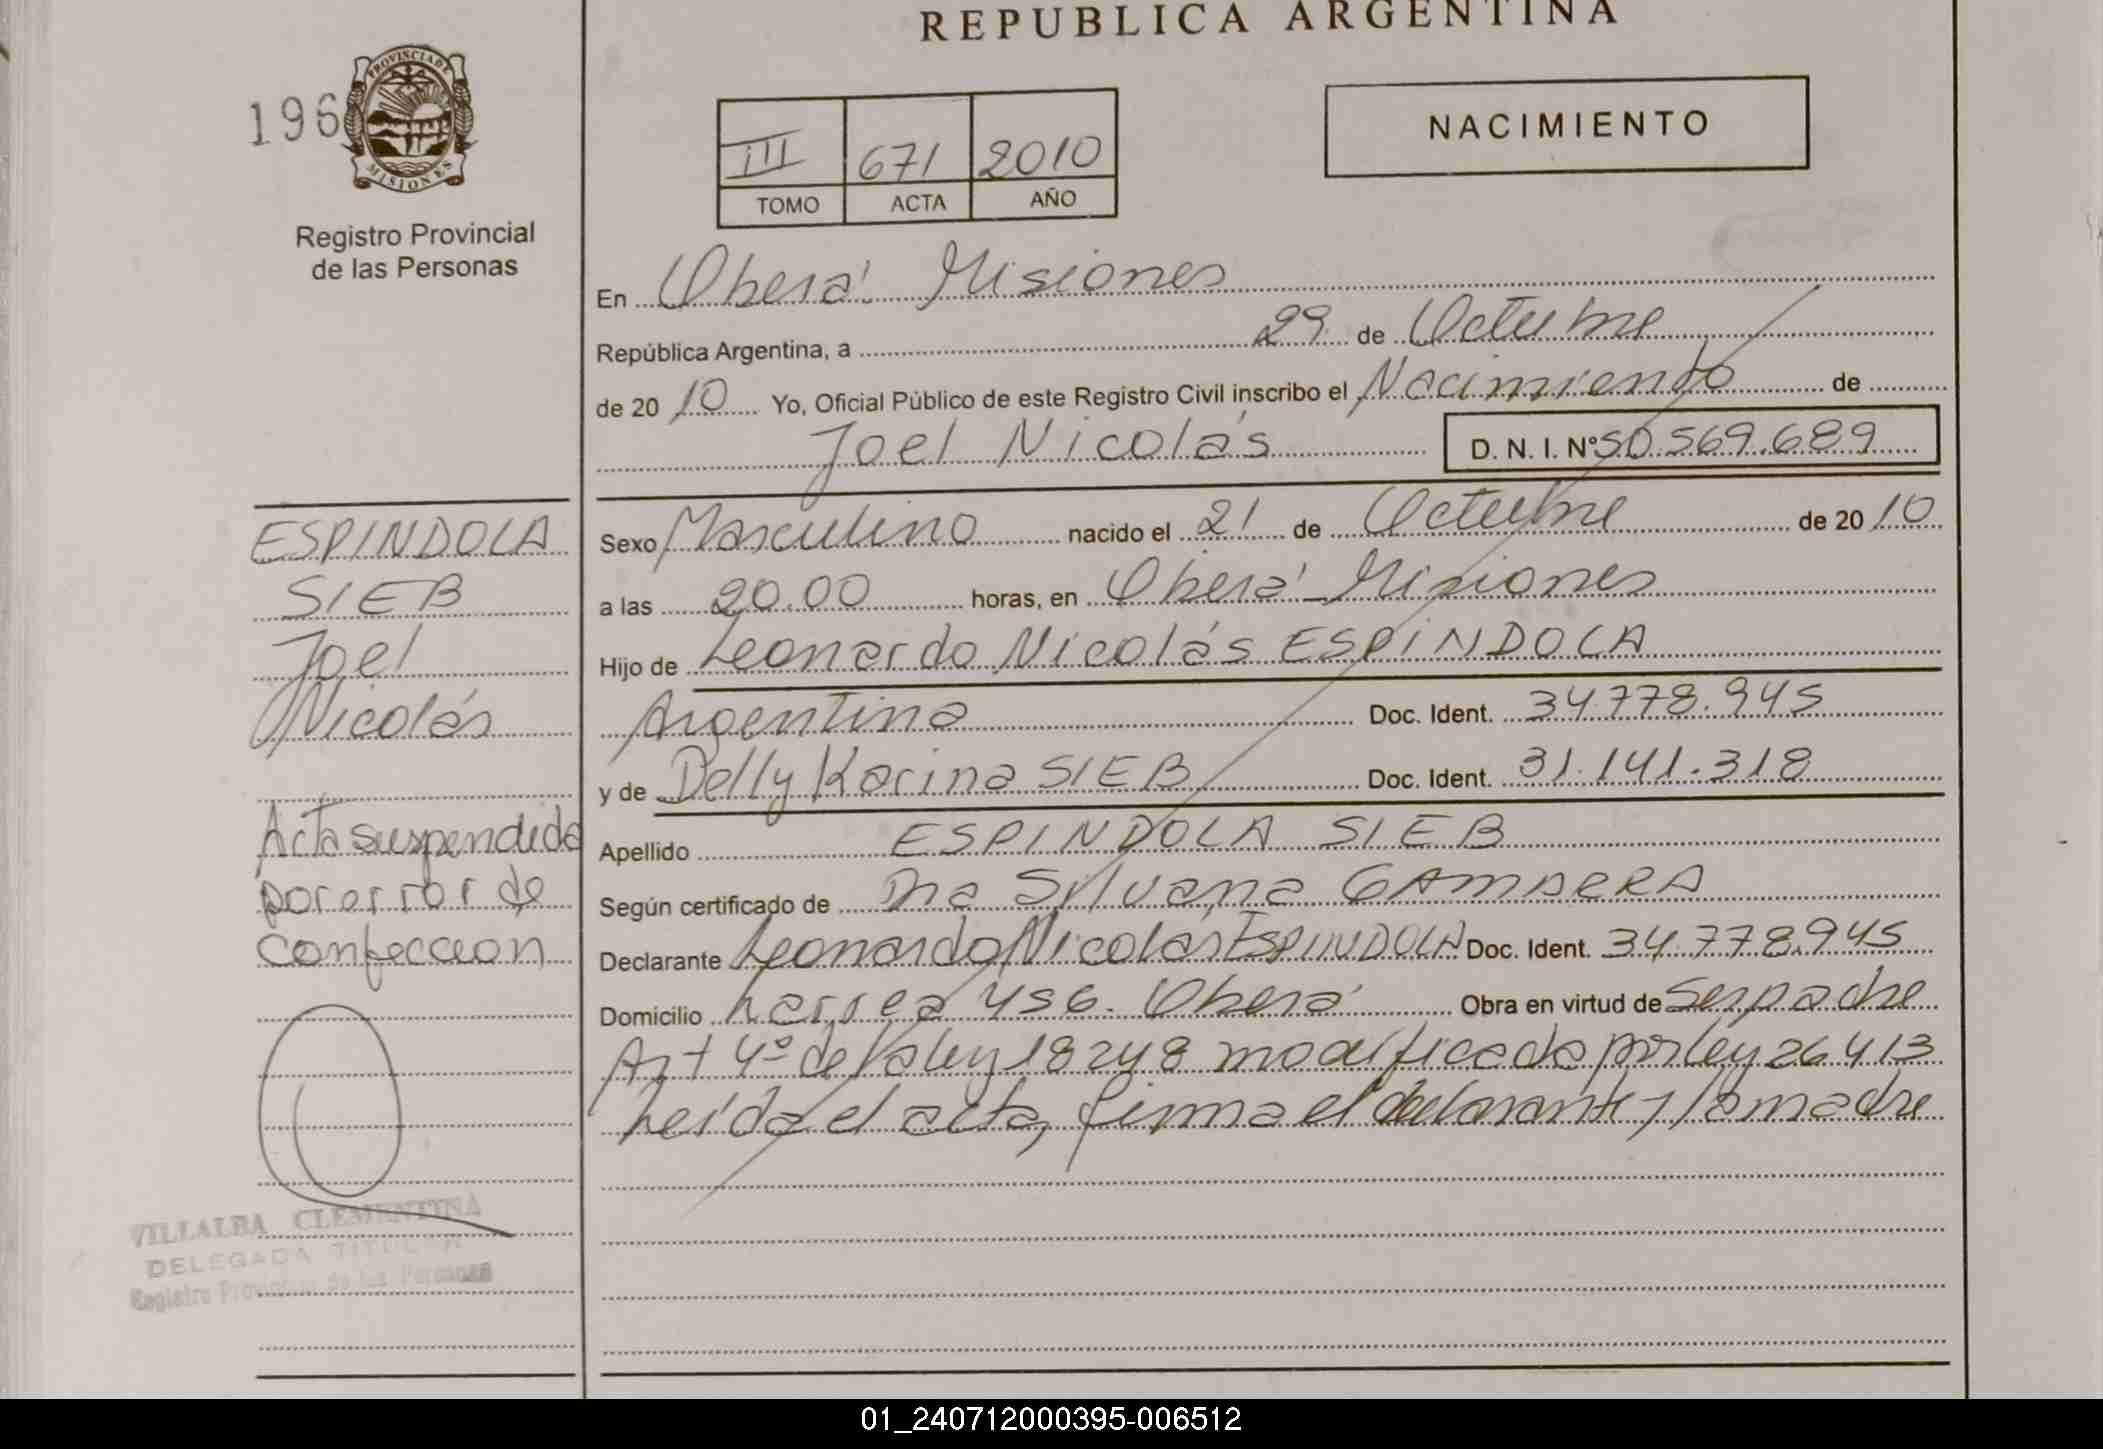 REPUBLICA ARGENTINA
196
PROVINCIA DE
MISIONES
Registro Provincial
de las Personas
III 671 2010
TOMO ACTA AÑO
NACIMIENTO
En Oberá. Misiones
República Argentina, a 29 de Octubre
de 20 10 Yo, Oficial Público de este Registro Civil inscribo el Nacimiento de
Joel Nicolás D. N. I. Nº 50.569.689
Sexo Masculino nacido el 21 de Octubre de 20 10
a las 20.00 horas, en Oberá - Misiones
Hijo de Leonardo Nicolás ESPINDOLA
Argentina Doc. Ident. 34.778.945
y de Delly Karina SIEB Doc. Ident. 31.141.318
Apellido ESPINDOLA SIEB
Según certificado de Dra Silvana GAMARRA
Declarante Leonardo Nicolás ESPINDOLA Doc. Ident. 34.778.945
Domicilio Larrea 456. Oberá Obra en virtud de Ser padre
Art 4º de la ley 18248 modificada por ley 26413
Leída el acta, firma el declarante y la madre
ESPINDOLA
SIEB
Joel
Nicolás
Acta suspendida
por error de
Confeccion
VILLALBA CLEMENTINA
DELEGADA TITULAR
Registro Provincial de las Personas
01_240712000395-006512